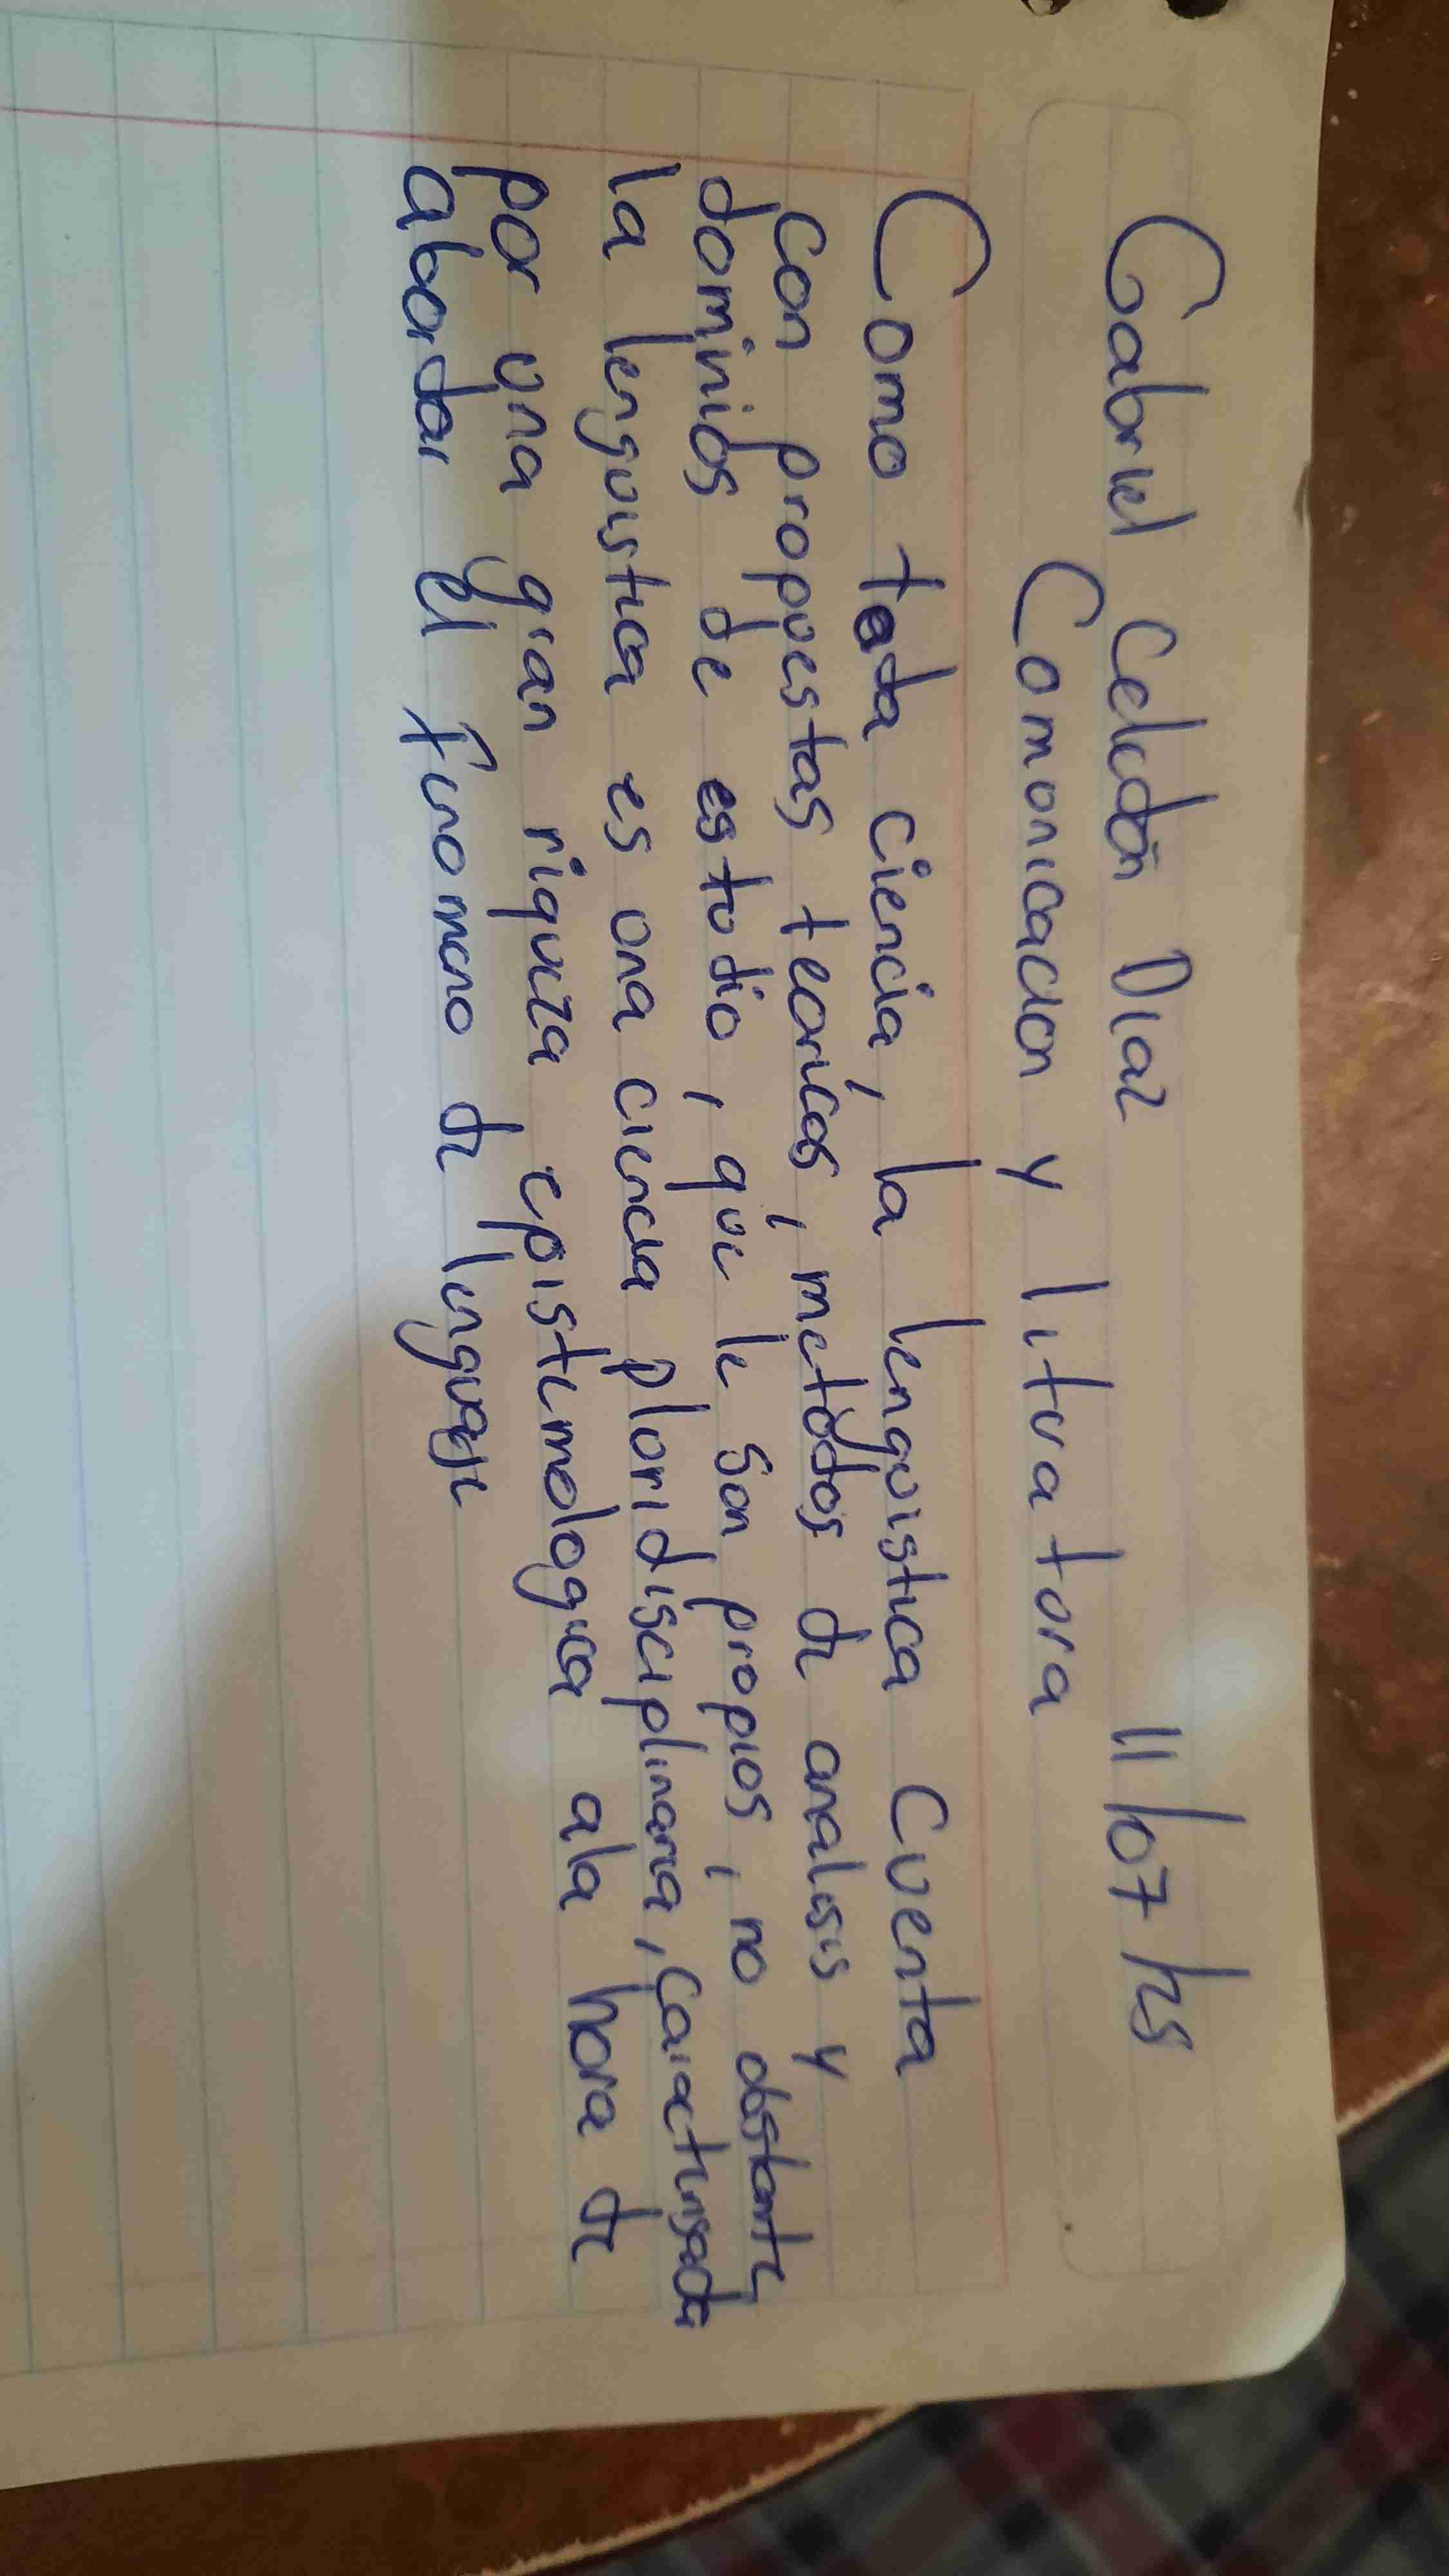 Gabriel Celedón Diaz 11/07/25
Comonicacion y literatora
Como toda ciencia, la lenguistica Cuenta
con propuestas teoricas, metodos de analisis y
dominios de estudio, que le son propios, no obstante,
la lenguistica es ona ciencia ploridisciplinaria, caracterisada
por ona gran riqueza epistemologica ala hora de
abordar el fenomeno de lenguaje